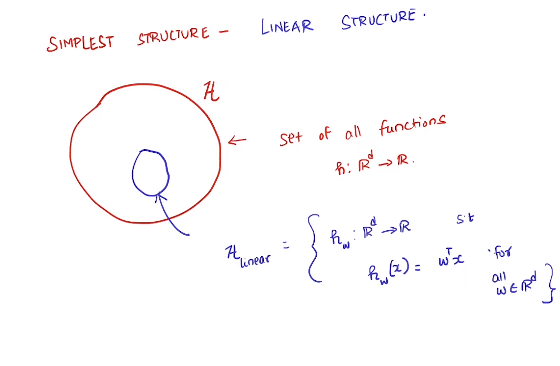 SIMPLEST STRUCTURE - LINEAR STRUCTURE.
H
← set of all functions
h: ℝᵈ → ℝ.
H_linear = { h_w : ℝᵈ → ℝ s.t
h_w(x) = wᵀx for
all
w ∈ ℝᵈ }